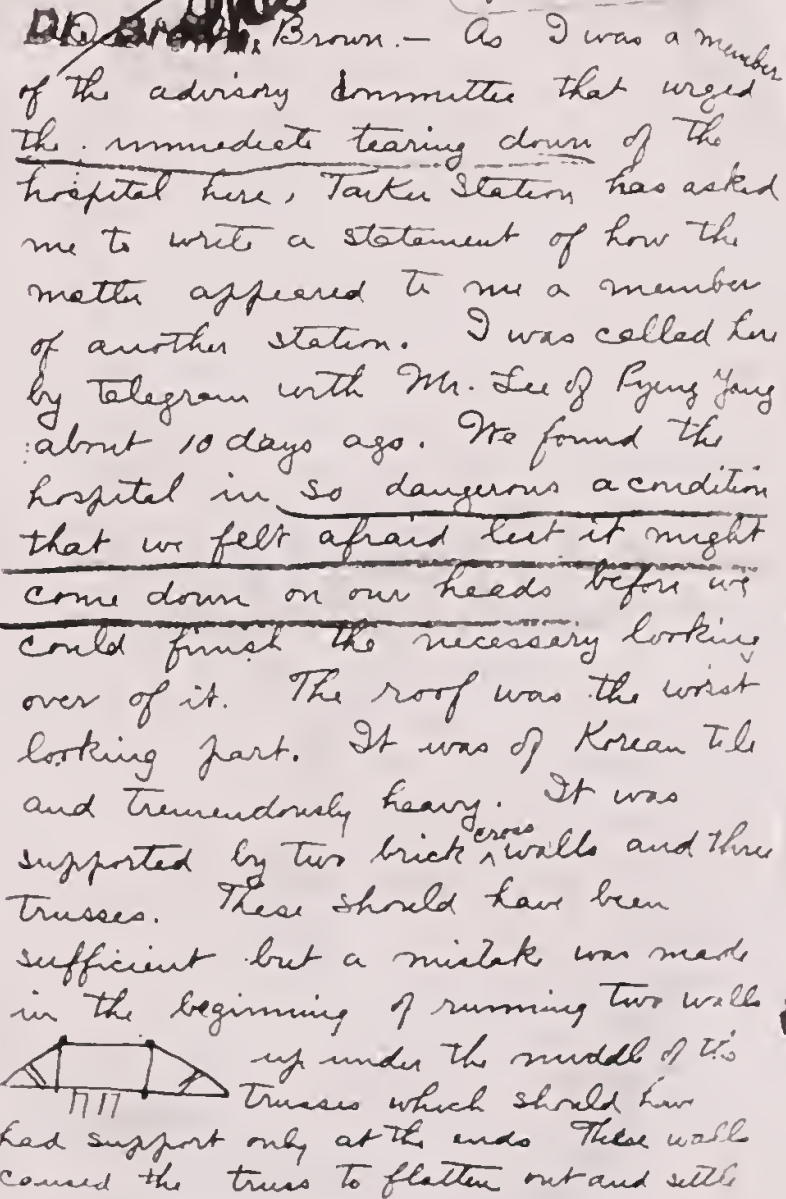 Brown. — As I was a member
of the advisory Committee that urged
the immediate tearing down of the
hospital here, Taiku Station has asked
me to write a statement of how the
matter appeared to me a member
of another station. I was called here
by telegram with Mr. Lee of Pyeng Yang
about 10 days ago. We found the
hospital in so dangerous a condition
that we felt afraid lest it might
come down on our heads before we
could finish the necessary looking
over of it. The roof was the worst
looking part. It was of Korean tile
and tremendously heavy. It was
supported by two brick cross walls and three
trusses. These should have been
sufficient but a mistake was made
in the beginning of running two walls
up under the middle of the
trusses which should have
had support only at the ends These walls
caused the truss to flatten out and settle